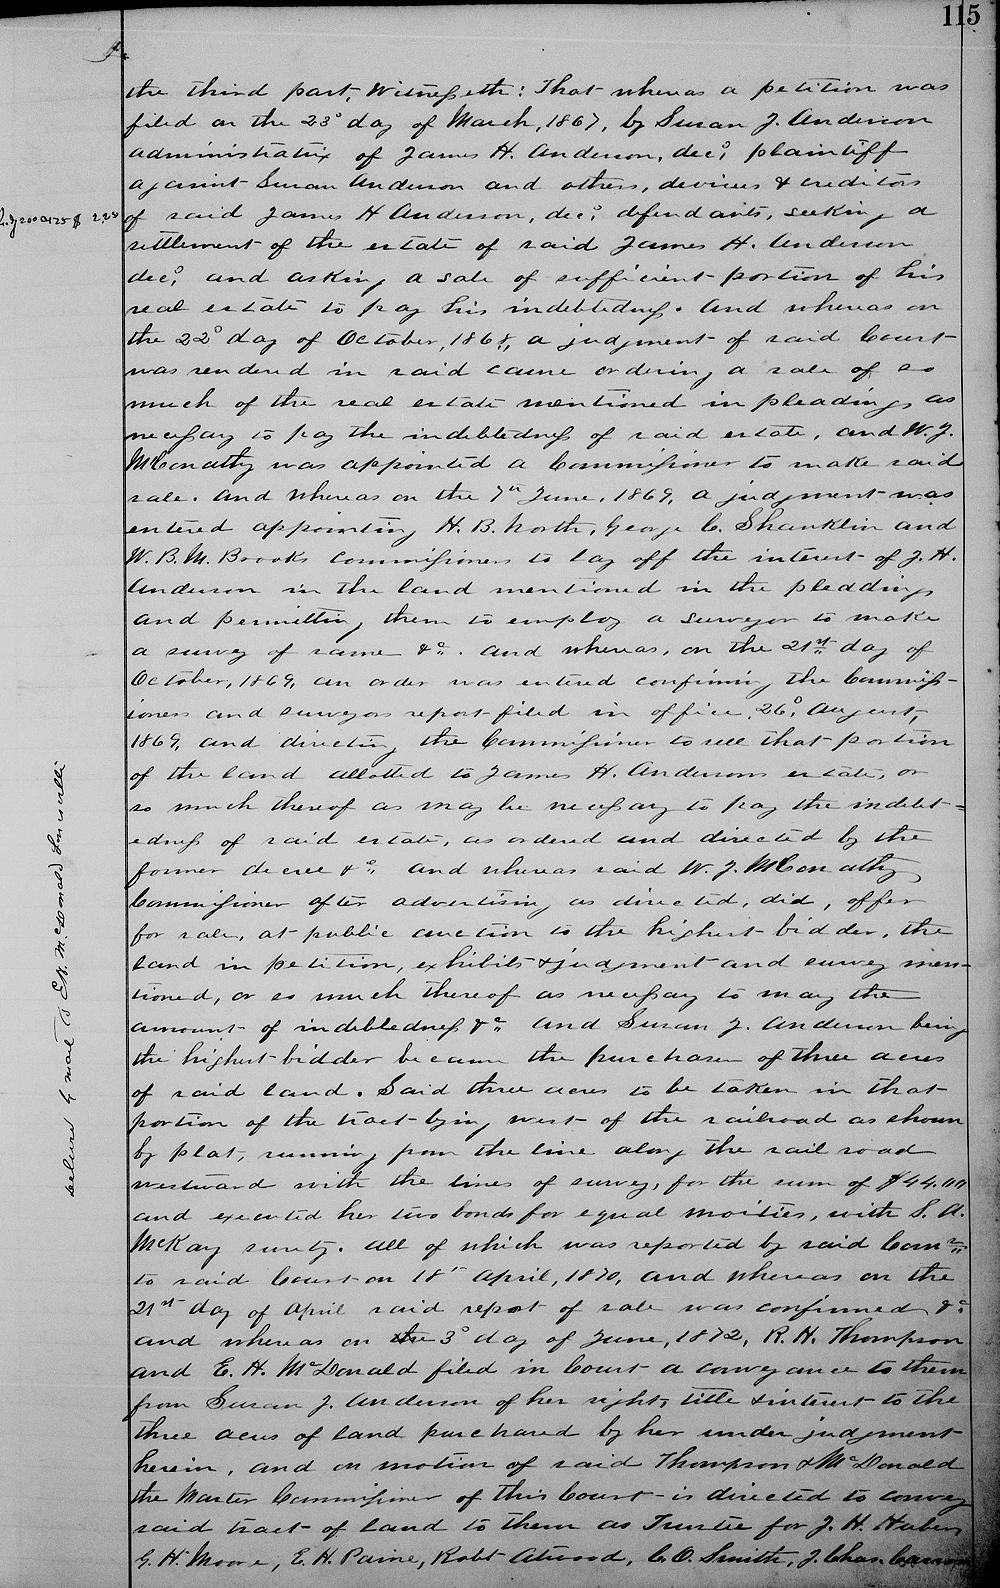 115
the third part, Witnesseth: That whereas a petition was
filed on the 23d day of March, 1867, by Susan J. Anderson
administratrix of James H. Anderson, decd, plaintiff
against Susan Anderson and others, devisees & creditors
of said James H Anderson, decd, defendants, seeking a
settlement of the estate of said James H. Anderson
decd, and asking a sale of sufficient portion of his
real estate to pay his indebtedness. And whereas on
the 22d day of October, 1868, a judgment of said Court
was rendered in said cause ordering a sale of so
much of the real estate mentioned in pleadings as
necessary to pay the indebtedness of said estate, and W. J.
McConathy was appointed a Commissioner to make said
sale. And whereas on the 7th June, 1869, a judgment was
entered appointing H. B. North, George C. Shanklin and
W. B. M. Brooks commissioners to lay off the interest of J. H.
Anderson in the land mentioned in the pleddings
and permitting them to employ a surveyor to make
a survey of same &c. and whereas, on the 21st day of
October, 1869, an order was entered confirming the Commiss-
ioners and surveyors report filed in office, 26d, August,
1869, and directing the Commissioner to sell that portion
of the land allotted to James H. Andersons estate, or
so much thereof as may be necessary to pay the indebt=
edness of said estate, as ordered and directed by the
former decree &c. and whereas said W. J. McConathy
Commissioner after advertising as directed, did, offer
for sale, at public auction to the highest bidder, the
land in petition, exhibits & judgment and survey men-
tioned, or so much thereof as necessary to may the
amount of indebtedness &c. And Susan J. Anderson being
the highest bidder became the purchaser of three acres
of said land. Said three acres to be taken in that
portion of the tract lying west of the railroad as shown
by plat, running from the line along the rail road
westward with the lines of survey, for the sum of $44,
and executed her two bonds for equal moities, with S. A.
McKay surety. All of which was reported by said Comr
to said Court on 18th April, 1870, and whereas on the
21st day of April said report of sale was confirmed &c.
and whereas on the 3d day of June, 1872, R. H. Thompson
and E. H. McDonald filed in Court a conveyance to them
from Susan J. Anderson of her right, title & interest to the
three acres of land purchased by her under judgment
herein, and on motion of said Thompson & McDonald
the Master Commissioner of this Court is directed to convey
said tract of land to them as Trustee for J. H. Huber,
G. H. Moore, E. H. Paine, Robt Atwood, C. O. Smith, J. Chas.